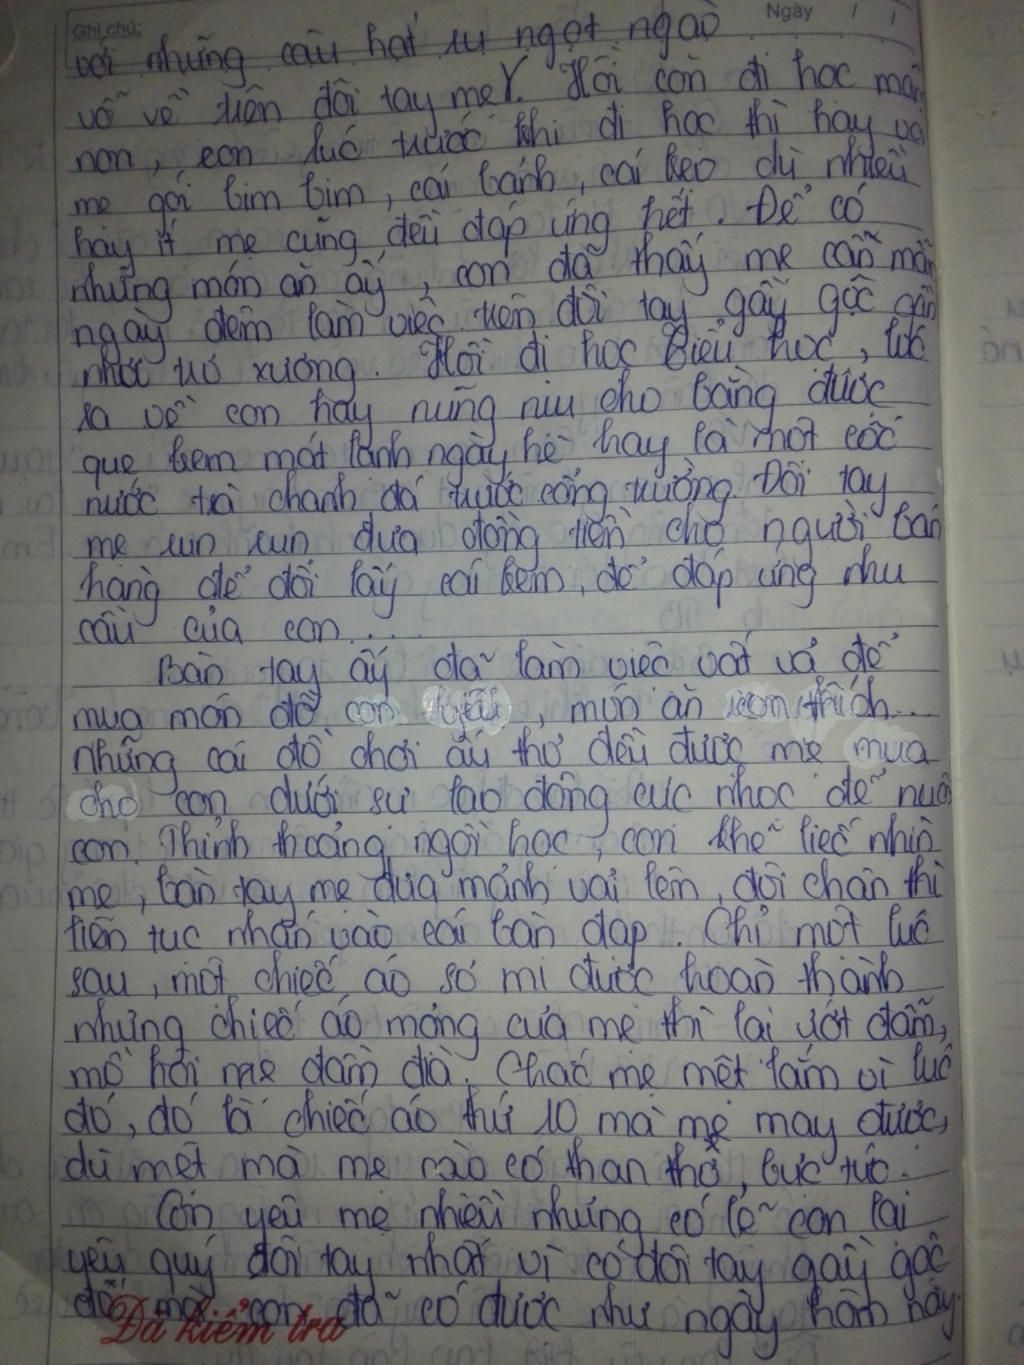 Ghi chú: Ngày / /
với những câu hát ru ngọt ngào
vỗ về trên đôi tay mẹ. Hồi còn đi học mầm
non, con lúc trước khi đi học thì hay vòi
mẹ gói bim bim, cái bánh, cái kẹo dù nhiều
hay ít mẹ cũng đều đáp ứng hết. Để có
những món ăn ấy, con đã thấy mẹ cần mẫn
ngày đêm làm việc trên đôi tay gầy gộc gần
như trơ xương. Hồi đi học Tiểu học, lúc
ra về con hay nũng nịu cho bằng được
que kem mát lành ngày hè hay là một cốc
nước trà chanh đá trước cổng trường. Đôi tay
mẹ run run đưa đồng tiền cho người bán
hàng để đổi lấy cái kem, để đáp ứng nhu
cầu của con....
Bàn tay ấy đã làm việc vất vả để
mua món đồ con , món ăn con thích...
những cái đồ chơi ấu thơ đều được mẹ mua
cho con dưới sự lao động cực nhọc để nuôi
con. Thỉnh thoảng, ngồi học, con khẽ liếc nhìn
mẹ, bàn tay mẹ đưa mảnh vải lên, đôi chân thì
liên tục nhấn vào cái bàn đạp. Chỉ một lúc
sau, một chiếc áo sơ mi được hoàn thành
nhưng chiếc áo mỏng của mẹ thì lại ướt đẫm,
mồ hôi mẹ đầm đìa. Chắc mẹ mệt lắm vì lúc
đó, đó là chiếc áo thứ 10 mà mẹ may được,
dù mệt mà mẹ nào có than thở, bực tức.
Con yêu mẹ nhiều nhưng có lẽ con lại
yêu quý đôi tay nhất vì có đôi tay gầy gộc
đó mà con đã có được như ngày hôm nay.
Đã kiểm tra